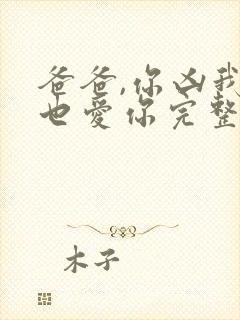 爸爸,你凶我
也爱你完整
木子